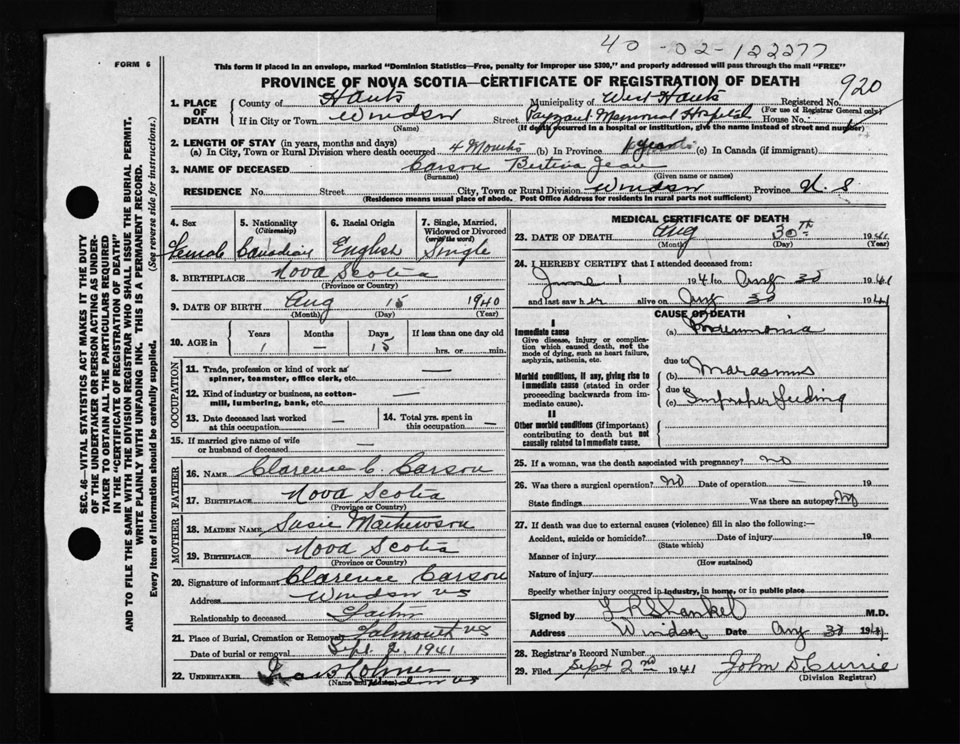 40-02-122277
This form if placed in an envelope, marked "Dominion Statistics—Free, penalty for improper use $300," and properly addressed will pass through the mail "FREE"
FORM 6
PROVINCE OF NOVA SCOTIA—CERTIFICATE OF REGISTRATION OF DEATH
920
1. PLACE OF DEATH
County of Hants Municipality of West Hants Registered No.
(For use of Registrar General only)
If in City or Town Windsor Street Payzant Memorial Hospital House No.
(Name) (If death occurred in a hospital or institution, give the name instead of street and number)
2. LENGTH OF STAY (in years, months and days)
(a) In City, Town or Rural Division where death occurred 4 Months (b) In Province (c) In Canada (if immigrant)
3. NAME OF DECEASED Carson Bertina Jean
(Surname) (Given name or names)
RESIDENCE No. Street City, Town or Rural Division Windsor Province N.S
(Residence means usual place of abode. Post Office Address for residents in rural parts not sufficient)
SEC. 46—VITAL STATISTICS ACT MAKES IT THE DUTY
OF THE UNDERTAKER OR PERSON ACTING AS UNDER-
TAKER TO OBTAIN ALL THE PARTICULARS REQUIRED
IN THE "CERTIFICATE OF REGISTRATION OF DEATH"
AND TO FILE THE SAME WITH THE DIVISION REGISTRAR WHO SHALL ISSUE THE BURIAL PERMIT.
WRITE PLAINLY WITH UNFADING INK. THIS IS A PERMANENT RECORD.
Every item of information should be carefully supplied. (See reverse side for instructions.)
4. Sex 5. Nationality 6. Racial Origin 7. Single, Married,
(Citizenship) Widowed or Divorced
(write the word)
Female Canadian English Single
8. BIRTHPLACE Nova Scotia
(Province or Country)
9. DATE OF BIRTH Aug 15 1940
(Month) (Day) (Year)
10. AGE in Years Months Days If less than one day old
1 — 15 hrs. or min.
OCCUPATION
11. Trade, profession or kind of work as
spinner, teamster, office clerk, etc. —
12. Kind of industry or business, as cotton-
mill, lumbering, bank, etc. —
13. Date deceased last worked
at this occupation —
14. Total yrs. spent in
this occupation —
15. If married give name of wife
or husband of deceased —
FATHER
16. NAME Clarence C. Carson
17. BIRTHPLACE Nova Scotia
(Province or Country)
MOTHER
18. MAIDEN NAME Susie Mathewson
19. BIRTHPLACE Nova Scotia
(Province or Country)
20. Signature of informant Clarence Carson
Address Windsor NS
Relationship to deceased Father
21. Place of Burial, Cremation or Removal Falmouth NS
Date of burial or removal Sept. 2, 1941
22. UNDERTAKER
(Name and Address) Windsor NS
MEDICAL CERTIFICATE OF DEATH
23. DATE OF DEATH Aug 30th 1941
(Month) (Day) (Year)
24. I HEREBY CERTIFY that I attended deceased from:
June 1 1941 to Aug 30 1941
and last saw her alive on Aug 30 1941
CAUSE OF DEATH
I
Immediate cause (a) Pneumonia
Give disease, injury or complica-
tion which caused death, not the
mode of dying, such as heart failure,
asphyxia, asthenia, etc.
due to
Morbid conditions, if any, giving rise to
immediate cause (stated in order
proceeding backwards from im-
mediate cause).
(b) Marasmus
due to
(c) Improper feeding
II
Other morbid conditions (if important)
contributing to death but not
causally related to immediate cause.
25. If a woman, was the death associated with pregnancy? No
26. Was there a surgical operation? No Date of operation — 19
State findings Was there an autopsy? No
27. If death was due to external causes (violence) fill in also the following:—
Accident, suicide or homicide? Date of injury 19
(State which)
Manner of injury
(How sustained)
Nature of injury
Specify whether injury occurred in industry, in home, or in public place
Signed by M.D.
Address Windsor Date Aug 30 1941
28. Registrar's Record Number
29. Filed Sept 2nd 1941 John D. Currie
(Division Registrar)